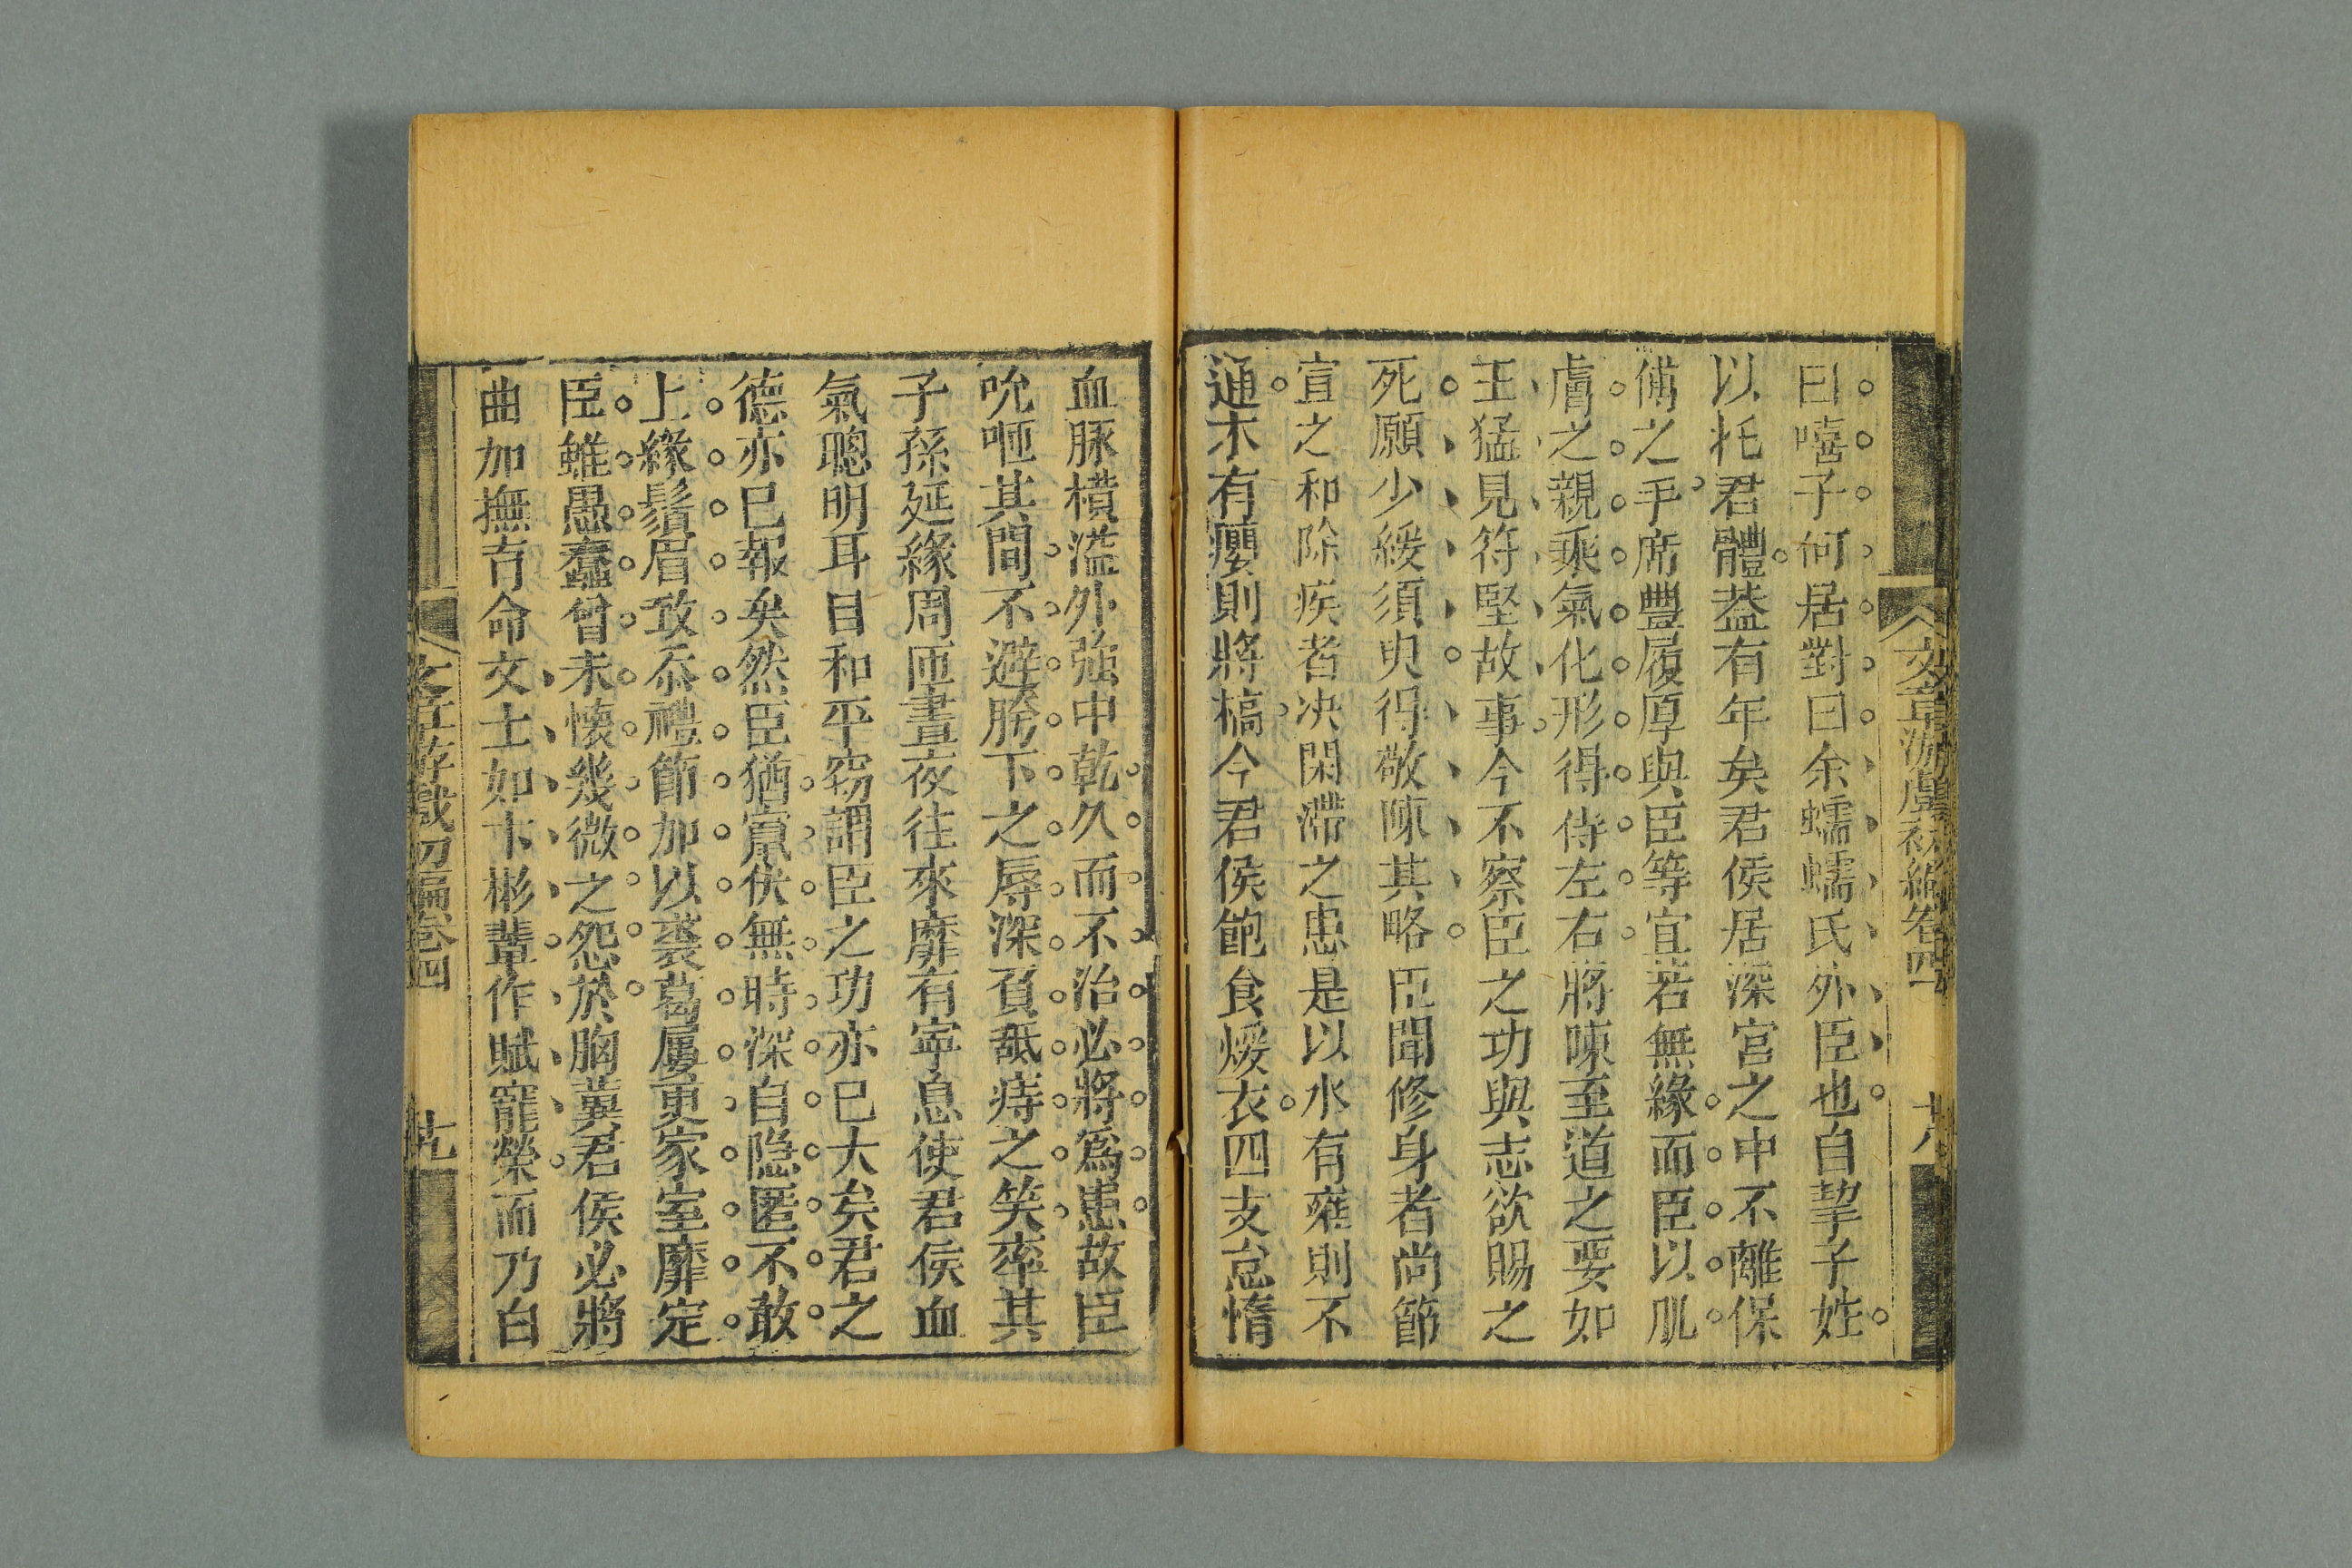 曰嘻子何居對曰余蠕蠕氏外臣也自挈子姓
以托君體葢有年矣君侯居深宮之中不離保
傅之手席豐履厚與臣等宜若無緣而臣以肌
膚之親乘氣化形得侍左右將陳至道之要如
王猛見符堅故事今不察臣之功與志欲賜之
死願少緩須臾得敬陳其略臣聞修身者尚節
宣之和除疾者决閑滯之患是以水有雍則不
通木有癭則將槁今君侯飽食煖衣四支怠惰
血脉橫溢外強中乾久而不治必將爲患故臣
吮咂其間不避胯下之辱深負舐痔之笑率其
子孫延緣周匝晝夜往來靡有寧息使君侯血
氣聰明耳目和平竊謂臣之功亦巳大矣君之
德亦巳報矣然臣猶竄伏無時深自隱匿不敢
上緣鬚眉敢忝禮節加以裘葛屢更家室靡定
臣雖愚蠢曾未懷幾微之怨於胸冀君侯必將
曲加撫育命文士如卞彬輩作賦寵榮而乃白
文章游戲初編卷四